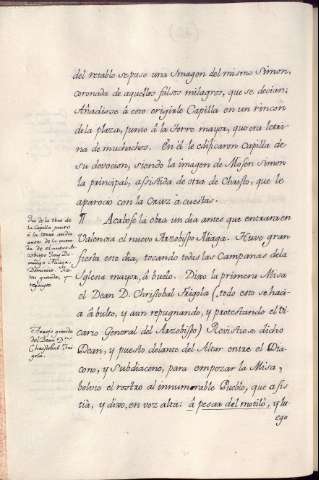 del retablo se puso una Imagen del mismo Simon,
coronada de aquellos falsos milagros, que se decian;
Añadiose à esto erigirle Capilla en un rincon
de la plaza, junto à la torre mayor, que era letri-
na de muchachos. En èl le edificaron Capilla de
su devocion, siendo la imagen de Mosen Simon
la principal, assistida de otra de Christo, que le
aparecio con la Cruz à cuestas.
¶ Acabose la obra un dia antes que entrara en
Valencia el nuevo Arzobispo Aliaga. Huvo gran
fiesta este dia, tocando todas las Campanas de la
Iglesia mayor, à buelo. Dixo la primera Missa
el Dean D. Christobal Frigola (todo esto se haci-
a à bulto, y aun repugnando, y protestando el Vi-
cario General del Arzobispo) Revistiose dicho
Dean, y puesto delante del Altar entre el Dia-
cono, y Subdiacono, para empezar la Missa,
bolvio el rostro al innumerable Pueblo, que asis-
tia, y dixo, en voz alta: à pesar del motilò, y lu
ego
Fin de la obra de
la Capilla junto
à la torre
antes de la
da de el nuevo Ar-
zobispo
Aliaga,
Dominico.
Arrojo grande
del Dean D.n
Christobal Fri-
gola.